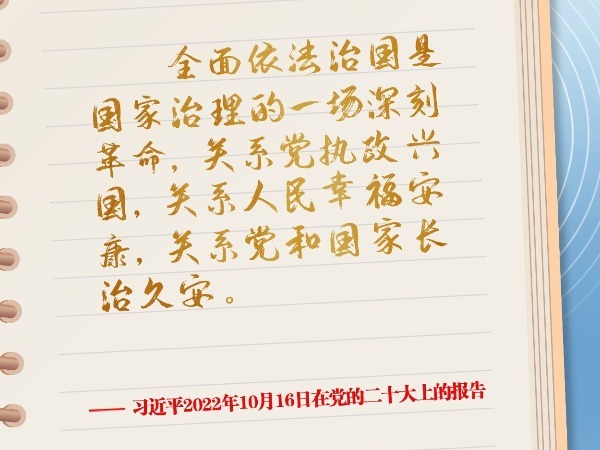 全面依法治国是
国家治理的一场深刻
革命，关系党执政兴
国，关系人民幸福安
康，关系党和国家长
治久安。
—— 习近平2022年10月16日在党的二十大上的报告